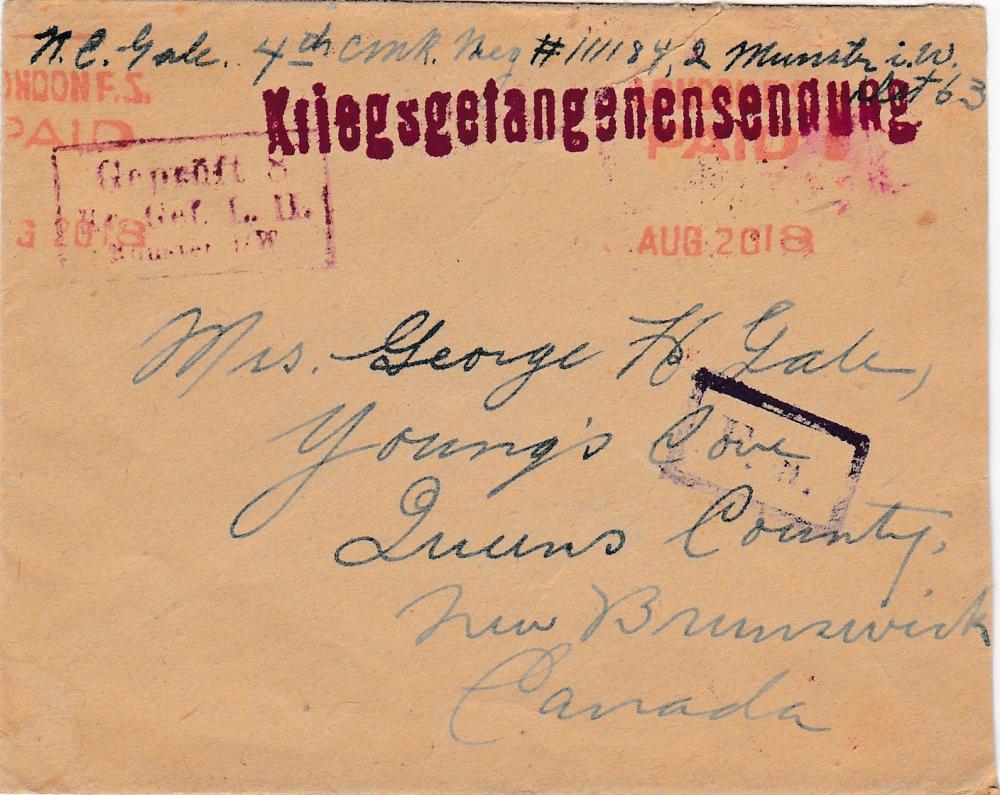 N. C. Gale. 4th CMR. Reg #111184, 2 Munster i.W.
Det 63
Kriegsgefangenensendung
ONDON F.S.
PAID
PAID
Geprüft 8
L. II.
Münster i/W
G 20 18
AUG 20 18
Mrs. George H. Gale,
Young's Cove
F. a.
Queens County,
New Brunswick
Canada